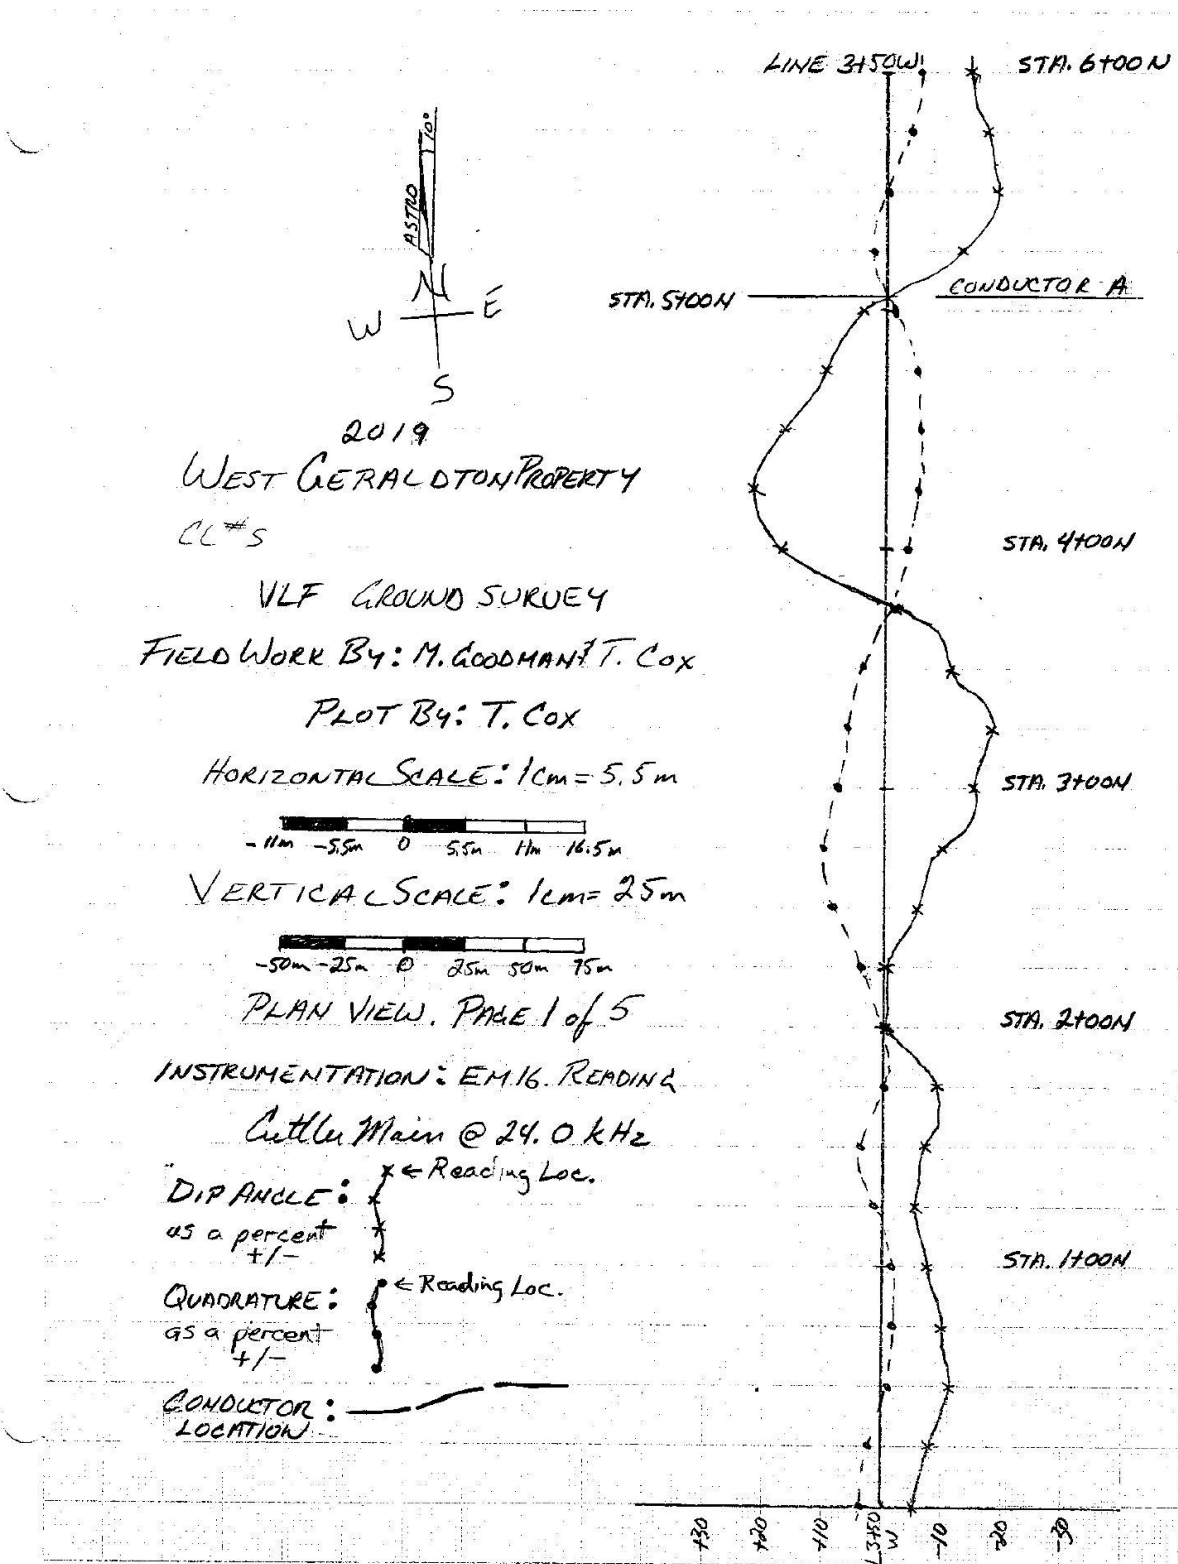 LINE 3+50W
STA. 6+00N
10°
ASTRO
N
W E
S
STA. 5+00N
CONDUCTOR A
2019
WEST GERALDTON PROPERTY
CL#S
STA. 4+00N
VLF GROUND SURVEY
FIELD WORK BY: M. GOODMAN & T. COX
PLOT BY: T. COX
HORIZONTAL SCALE: 1cm = 5.5m
STA. 3+00N
-11m -5.5m 0 5.5m 11m 16.5m
VERTICAL SCALE: 1cm = 25m
-50m -25m 0 25m 50m 75m
PLAN VIEW. PAGE 1 of 5
STA. 2+00N
INSTRUMENTATION: EM16. READING
Cutller Main @ 24.0 kHz
DIP ANGLE: ← Reading Loc.
as a percent
+/-
STA. 1+00N
QUADRATURE: ← Reading Loc.
as a percent
+/-
CONDUCTOR:
LOCATION
+30 +20 +10 L3+50 W -10 -20 -30